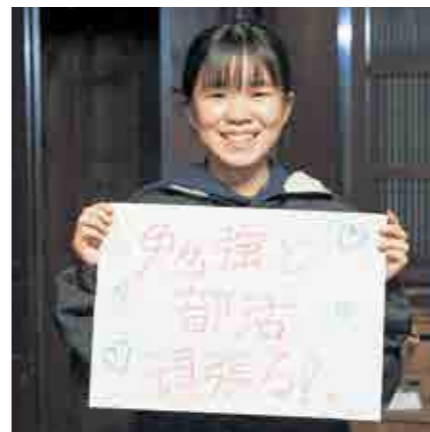 勉強と
部活
頑張る!